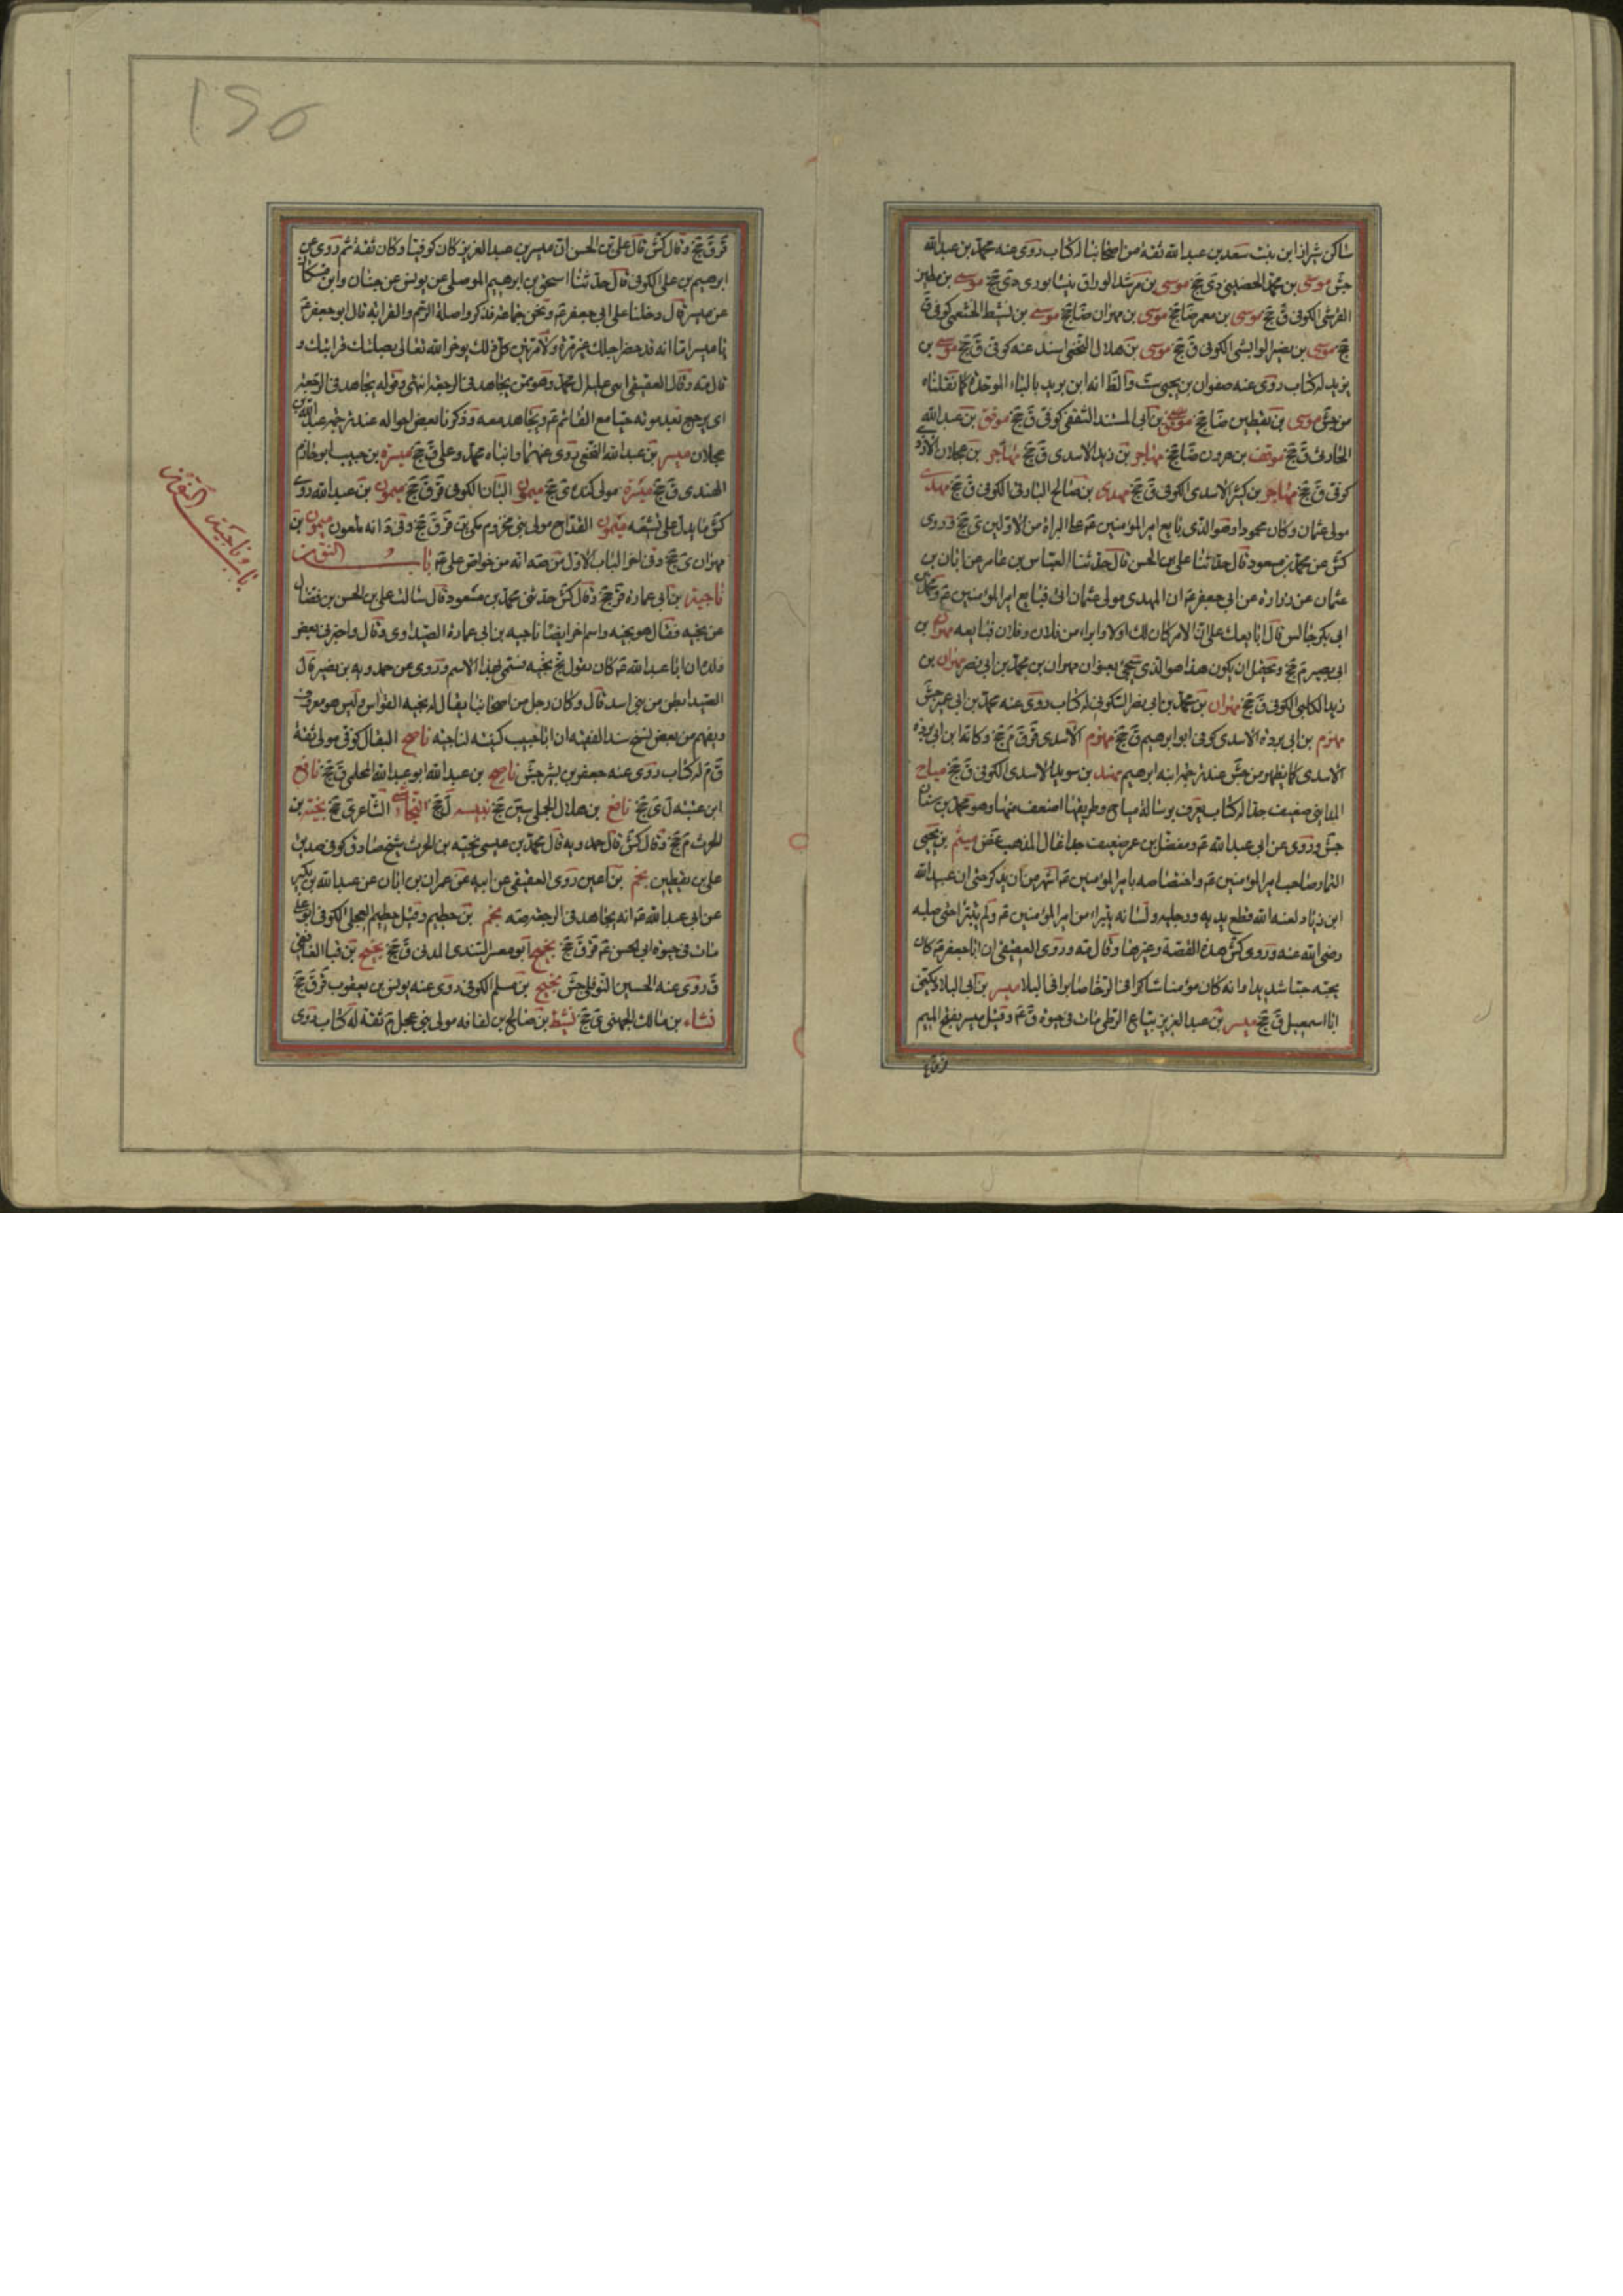 ساكن شيراز ابن بنت سعد بن عبد الله ثقة من اصحابنا له كتاب روى عنه محمد بن عبد الله
جش موسى بن محمد الحضينى دى جخ موسى بن مرشد الوراق نيشابورى دى جخ موسى بن
القرشى الكوفى ق جخ موسى بن معمر ضا جخ موسى بن مهران ضا جخ موسى بن نشيط الخثعمى كوفى ق
جخ موسى بن نصير الوابشى الكوفى ق جخ موسى بن هلال النخعى اسند عنه كوفى ق جخ موسى بن
يزيد له كتاب روى عنه صفوان بن يحيى ست والظ انه ابن بريد بالباء الموحدة كما نقلناه
من جش موسى بن يقطين ضا جخ موفق بن ابى المسند الثقفى كوفى ق جخ موفق بن عبد الله
موقف بن هرون ضا جخ مهاجر بن زيد الاسدى ق جخ مهاجر بن عجلان الازدى
كوفى ق جخ مهاجر بن كثير الاسدى الكوفى ق جخ مهدى بن صالح الكوفى ق جخ مهدى
مولى عثمان وكان محمودا وهو الذى بايع امير المؤمنين ع على البراءة من الاولين ى جخ وروى
كش عن محمد بن مسعود قال حدثنا على بن الحسن قال حدثنا العباس بن عامر عن ابان بن
عثمان عن زرارة عن ابى جعفر ع ان المهدى مولى عثمان اتى فبايع امير المؤمنين ع ومحمد بن
ابى بكر جالس قال ابايعك على ان الامر كان لك اولا وابراء من فلان وفلان فبايعه مهران بن
ابى بصير م جخ ويحتمل ان يكون هذا هو الذى سيجئ بعنوان مهران بن محمد بن ابى نصر مهران بن
زيد الكابى الكوفى ق جخ مهران بن محمد بن ابى نصر السكونى له كتاب روى عنه محمد بن ابى عمير جش
مهزم بن ابى بردة الاسدى كوفى ابو ابرهيم ق جخ مهزم الاسدى قر ق م جخ وكانه ابن ابى بردة
الاسدى كما يظهر من جش عند ترجمة ابنه ابرهيم مهند بن سويد الاسدى الكوفى ق جخ مياح
المداينى ضعيف جدا له كتاب يعرف برسالة مياح وطريقها اضعف منها وهو محمد بن سنان
جش وروى عن ابى عبد الله ع ومفضل بن عمر ضعيف جدا غال المذهب غض ميثم بن يحيى
التمار صاحب امير المؤمنين ع واختصاصه بامير المؤمنين ع اشهر من ان يذكر حتى ان عبيد الله
ابن زياد لعنه الله قطع يديه ورجليه ولسانه يتبراء من امير المؤمنين ع ولم يتبرا حتى صلبه
رضى الله عنه وروى كش هذه القصة وغيرها وقال مه وروى العقيقى ان ابا جعفر ع كان
يحبه حبا شديدا وانه كان مؤمنا شاكرا فى الرخا صابرا فى البلا ميسر بن ابى البلاد يكنى
ابا اسمعيل ق جخ ميسر بن عبد العزيز بياع الزطى مات فى حيوة ق ع وقيل ميسر بفتح الميم
قر ق جخ وقال كش قال على بن الحسن ان ميسر بن عبد العزيز كان كوفيا وكان ثقة ثم روى عن
ابرهيم بن على الكوفى قال حدثنا اسحق بن ابرهيم الموصلى عن يونس عن حنان وابن مسكان
عن ميسر قال دخلنا على ابى جعفر ع ونحن جماعة فذكروا صلة الرحم والقرابة فقال ابو جعفر ع
يا ميسر اما انه قد حضر اجلك غير مرة ولا مرتين كل ذلك يوخر الله تعالى بصلتك قرابتك و
قال مه وقال العقيقى اثنى عليه ال محمد وهو ممن يجاهد فى الرجعة انتهى وقوله يجاهد فى الرجعة
اى يرجع بعد موته حيا مع القائم ع ويجاهد معه وذكرنا بعض احواله عند ترجمة عبد الله بن
عجلان ميسر بن عبد الله النخعى روى عنهما وابناه محمد وعلى ق جخ ميسرة بن حبيب ابو خازم
الهندى ق جخ ميسرة مولى كندة ى جخ ميمون البان الكوفى قر ق جخ ميمون بن عبد الله روى
كش ما يدل على تشيعه ميمون القداح مولى بنى مخزوم مكى ين قر ق جخ وفى د انه ملعون ميمون بن
مهران ى جخ وفى اخر الباب الاول من صه انه من خواص على ع باب النون
ناجية بن ابى عمارة قر جخ وقال كش حدثنى محمد بن مسعود قال سالت على بن الحسن بن فضال
عن نجبه فقال هو نجبه واسم اخر ايضا ناجيه بن ابى عمارة الصيداوى وقال واخبرنى بعض
ولده ان ابا عبد الله ع كان يقول نج نجبه فسمى بهذا الاسم وروى عن حمدويه بن نصير قال
الصيدا بطن من بنى اسد قال وكان رجل من اصحابنا يقال له نجيه القواس وليس هو معروف
ويفهم من بعض نسخ سند الفقيه ان ابا حبيب كنيه لناجيه ناصح البقال كوفى مولى ثقة
ق م له كتاب روى عنه جعفر بن بشير جش ناصح بن عبد الله ابو عبد الله المحلمى ق جخ نافع
ابن عتبه ل ى جخ نافع بن هلال الجملى سين جخ ل جخ النجاشى الشاعر ى جخ نجبة بن
الحرث م جخ وقال كش قال حمدويه قال محمد بن عيسى نجبة بن الحرث شيخ صادق كوفى صديق
على بن يقطين نجم بن اعين روى العقيقى عن ابيه عن عمران بن ابان عن عبد الله بن بكير
عن ابى عبد الله ع انه يجاهد فى الرجعة صه نجم بن حطيم وقيل خطيم العجلى الكوفى ابو على
مات فى حيوة ابى الحسن ع قر ق جخ نجيح ابو معشر السندى المدنى ق جخ نجيح بن قبا الغافقى
ق روى عنه الحسين النوفلى جش نجيح بن مسلم الكوفى روى عنه يونس بن يعقوب قر ق جخ
نشاء بن مالك الجهنى ى جخ نشيط بن صالح بن لفافه مولى بنى عجل م ثقة له كتاب روى
باب و ناجية النون